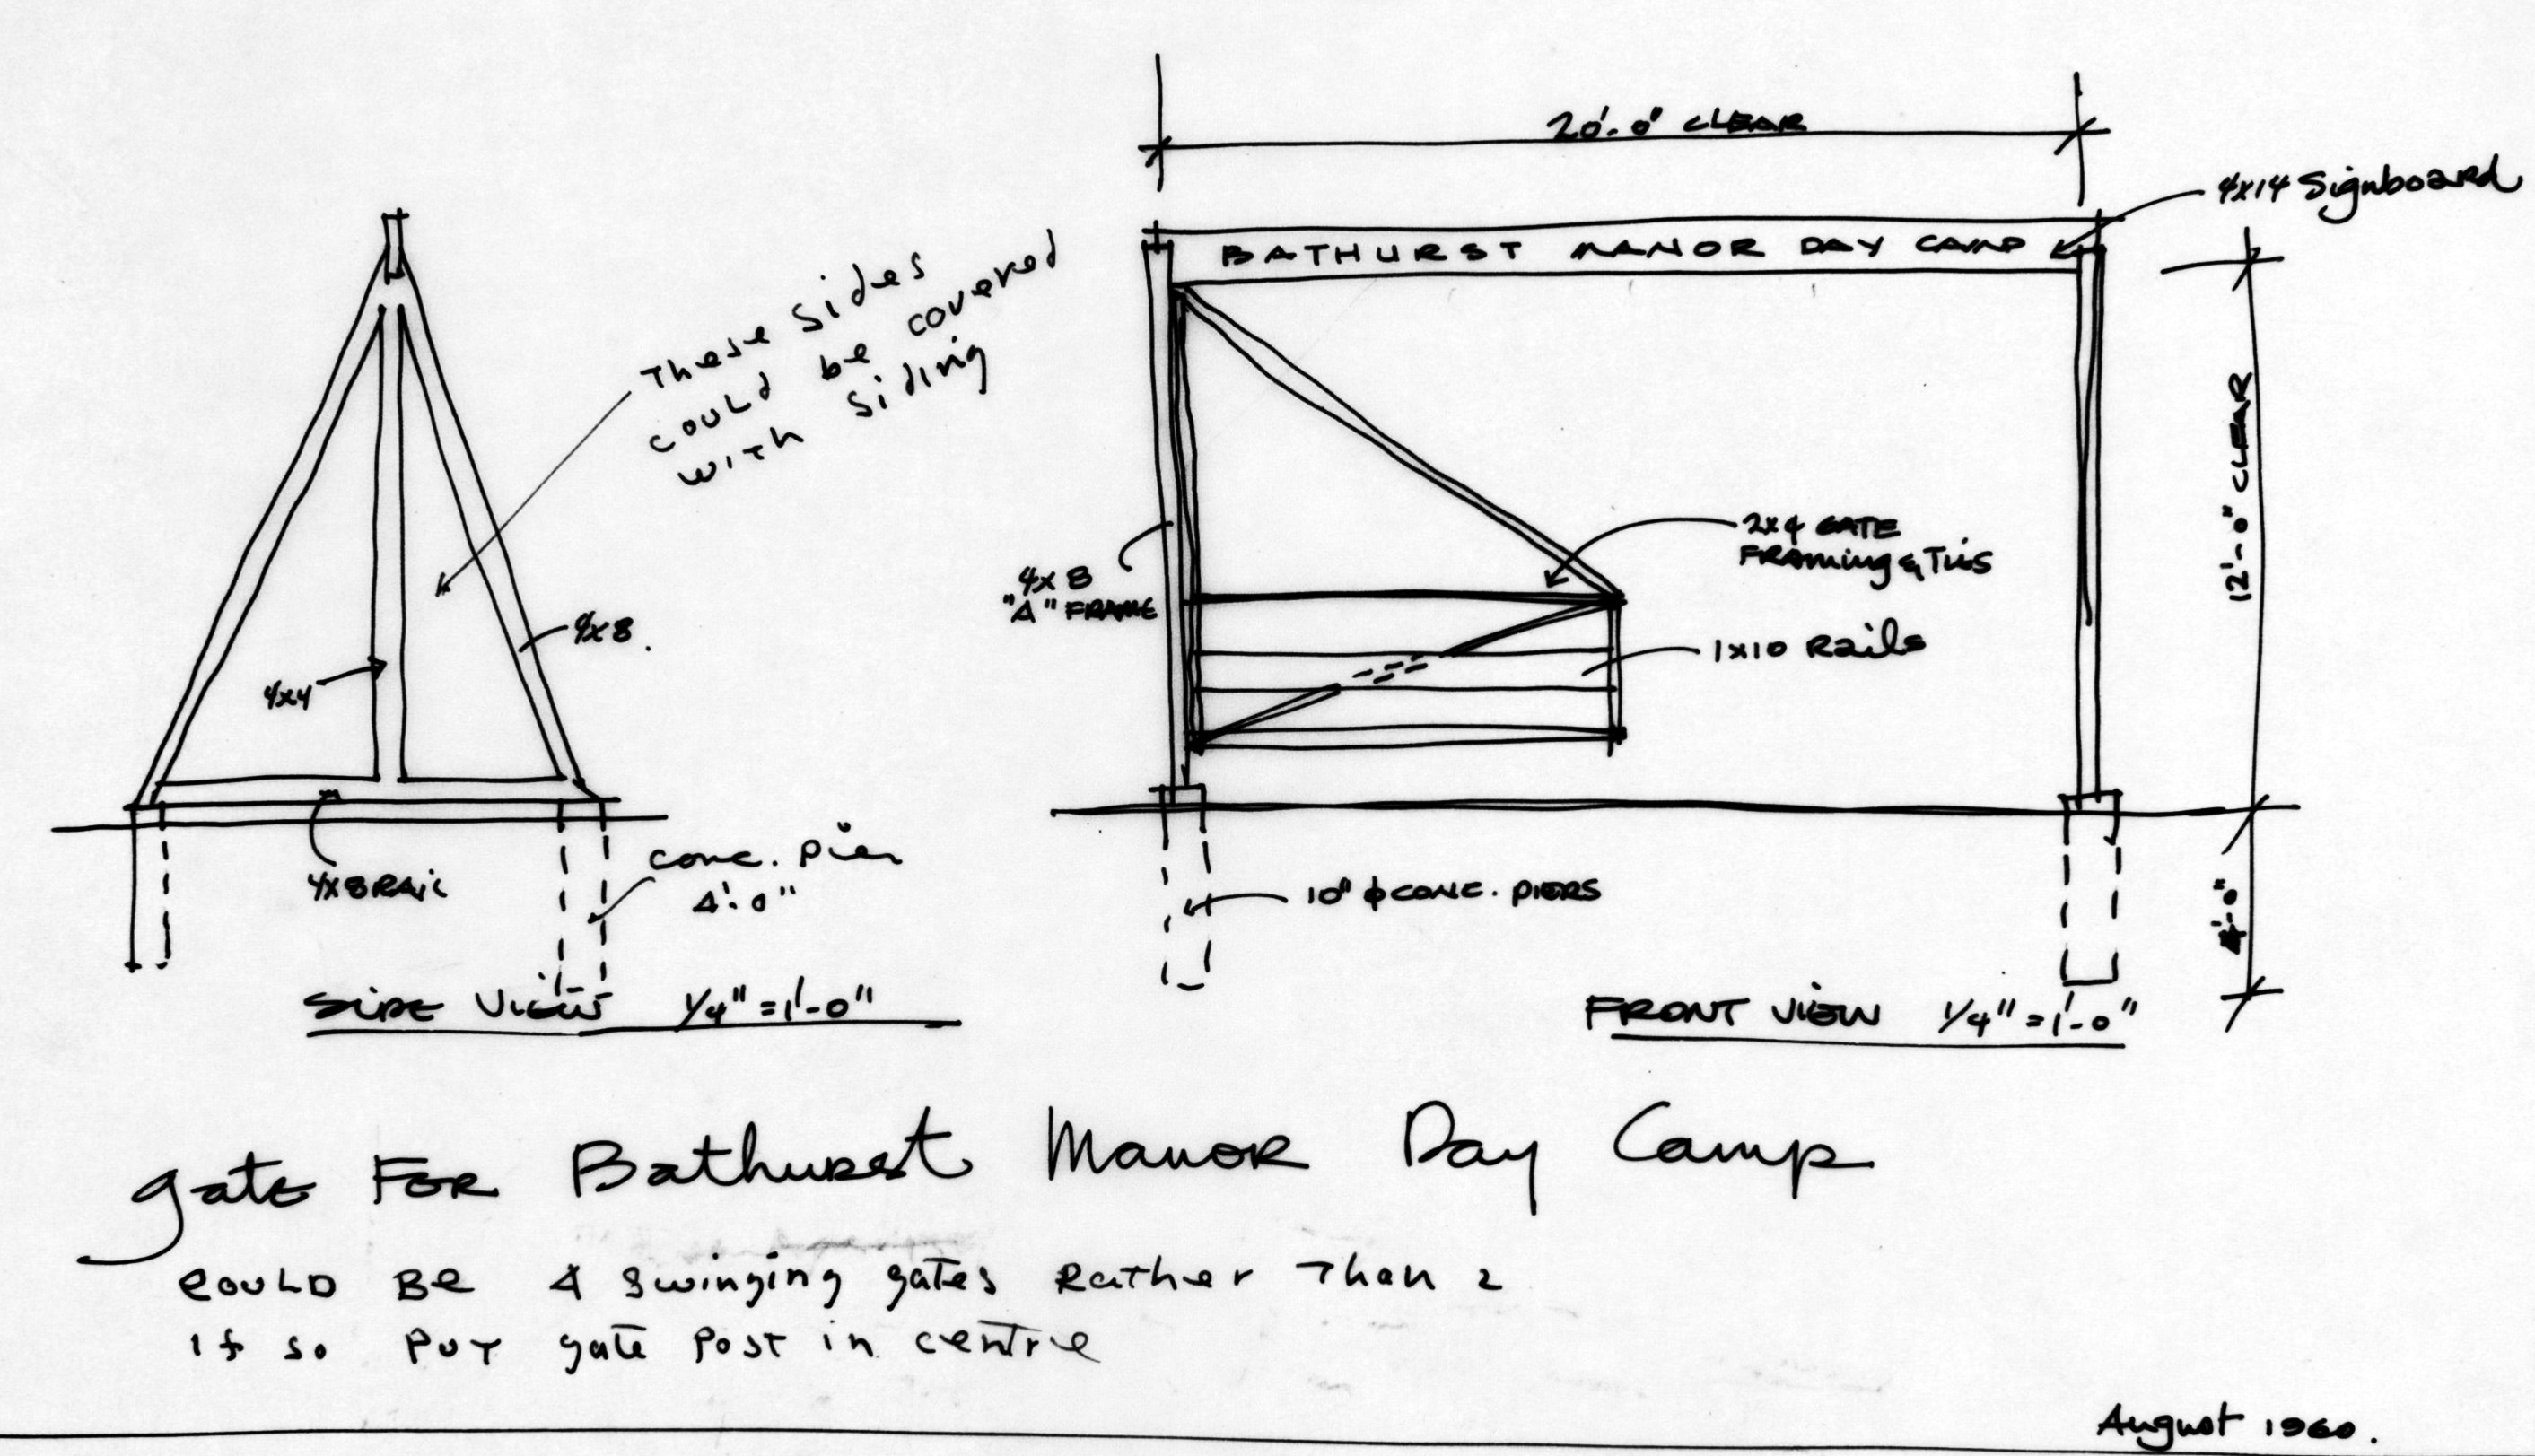 20'-0" CLEAR
4x14 Signboard
BATHURST MANOR DAY CAMP
These sides
could be covered
with siding
12'-0" CLEAR
2x4 GATE
FRAMING & Ties
4x8
"A" FRAME
4x8.
1x10 Rails
4x4
4x8 RAIL
conc. pier
4'-0"
10" ϕ CONC. PIERS
4'-0"
SIDE VIEW 1/4" = 1'-0"
FRONT VIEW 1/4" = 1'-0"
gate FOR Bathurst Manor Day Camp
COULD BE 4 swinging gates Rather Than 2
if so PUT gate post in centre
August 1960.